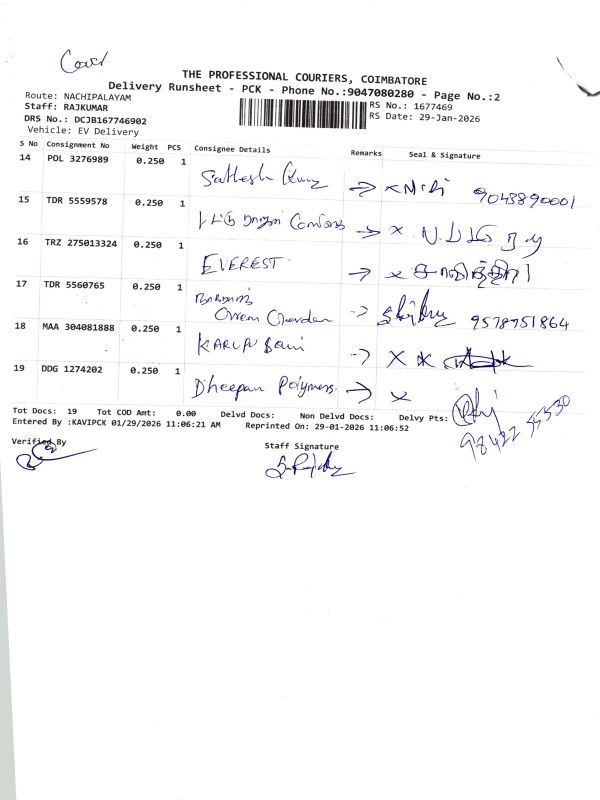 Cover
THE PROFESSIONAL COURIERS, COIMBATORE
Delivery Runsheet - PCK - Phone No.:9047080280 - Page No.:2
Route: NACHIPALAYAM
Staff: RAJKUMAR
DRS No.: DCJB167746902
Vehicle: EV Delivery
RS No.: 1677469
RS Date: 29-Jan-2026
S No Consignment No Weight PCS Consignee Details Remarks Seal & Signature
14 POL 3276989 0.250 1 Sathesh Kumar 9043890001
15 TDR 5559578 0.250 1
16 TRZ 275013324 0.250 1 EVEREST
17 TDR 5560765 0.250 1 9578751864
18 MAA 304081888 0.250 1
19 DDG 1274202 0.250 1 Dheepan Polymers
98422 55330
Tot Docs: 19 Tot COD Amt: 0.00 Delvd Docs: Non Delvd Docs: Delvy Pts:
Entered By :KAVIPCK 01/29/2026 11:06:21 AM Reprinted On: 29-01-2026 11:06:52
Verified By
Staff Signature